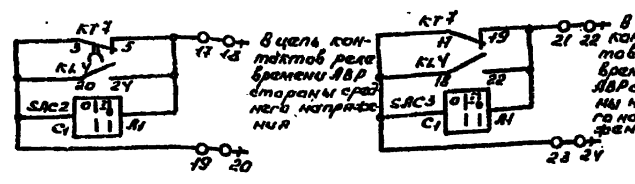 КТ7
3 5
KL4
20 24
SAC2
C1 А1
17 18
19 20
В цепь кон-
тактов реле
времени АВР
стороны сред-
него напряже-
ния
КТ7
11 19
KL4
18 22
SAC3
C1 А1
21 22
23 24
В
кон
тов
врем
АВР
ны н
го на
жен